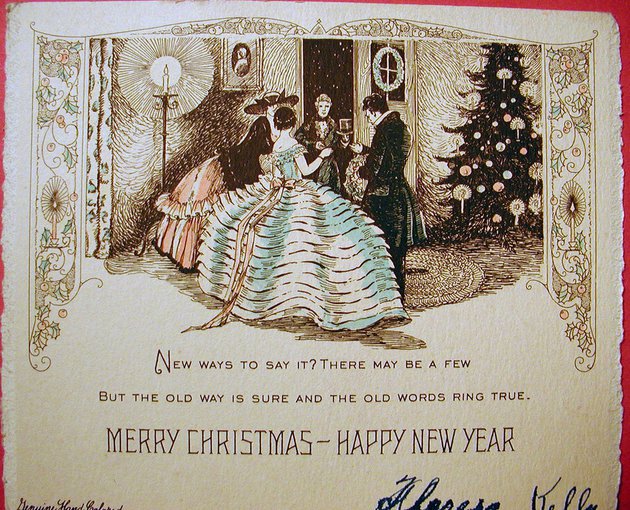 New ways to say it? There may be a few
But the old way is sure and the old words ring true.
MERRY CHRISTMAS — HAPPY NEW YEAR
Genuine Hand Colored
Kelly